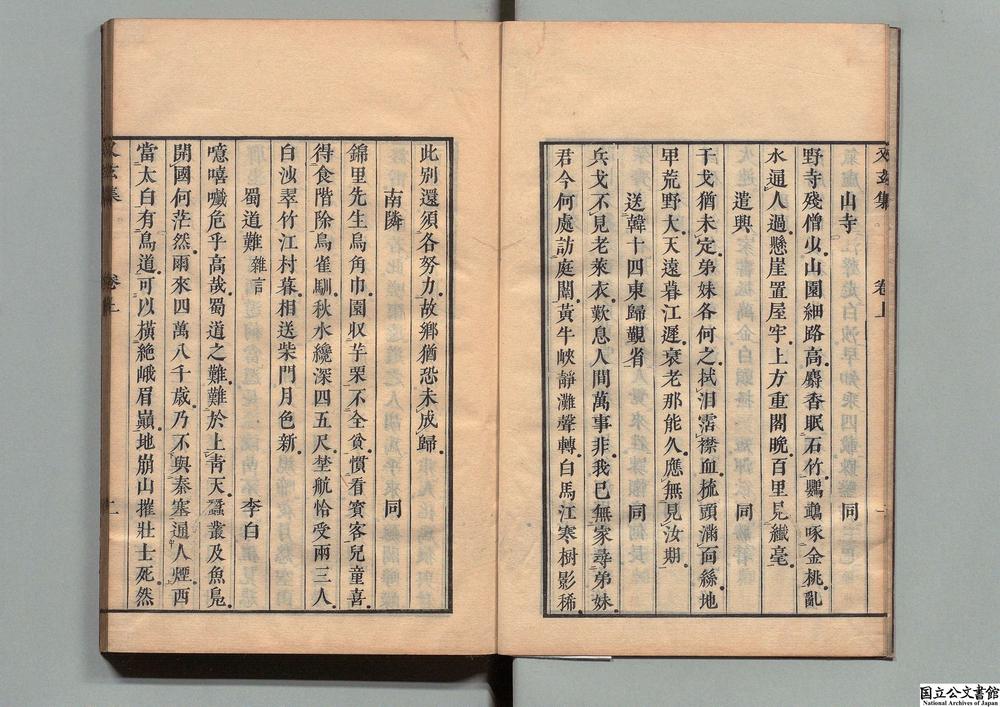 又玄集 卷上
山寺 同
野寺殘僧少山園細路高麝香眠石竹鸚鵡啄金桃亂
水通人過懸崖置屋牢上方重閣晚百里見纖毫
遣興 同
干戈猶未定弟妹各何之拭泪霑襟血梳頭滿面絲地
甲荒野大天遠暮江遲衰老那能久應無見汝期
送韓十四東歸覲省 同
兵戈不見老萊衣歎息人間萬事非我已無家尋弟妹
君今何處訪庭闈黃牛峽靜灘聲轉白馬江寒樹影稀
此別還須各努力故鄉猶恐未成歸
南隣 同
錦里先生烏角巾園収芋栗不全貧慣看賓客兒童喜
得食階除鳥雀馴秋水纔深四五尺埜航恰受兩三人
白沙翠竹江村暮相送柴門月色新
蜀道難 雜言 李白
噫嘻嚱危乎高哉蜀道之難難於上靑天蠶叢及魚鳧
開國何茫然爾來四萬八千歲乃不與秦塞通人煙西
當太白有鳥道可以橫絶峨眉巔地崩山摧壯士死然
又玄集 卷上 十一
国立公文書館
National Archives of Japan